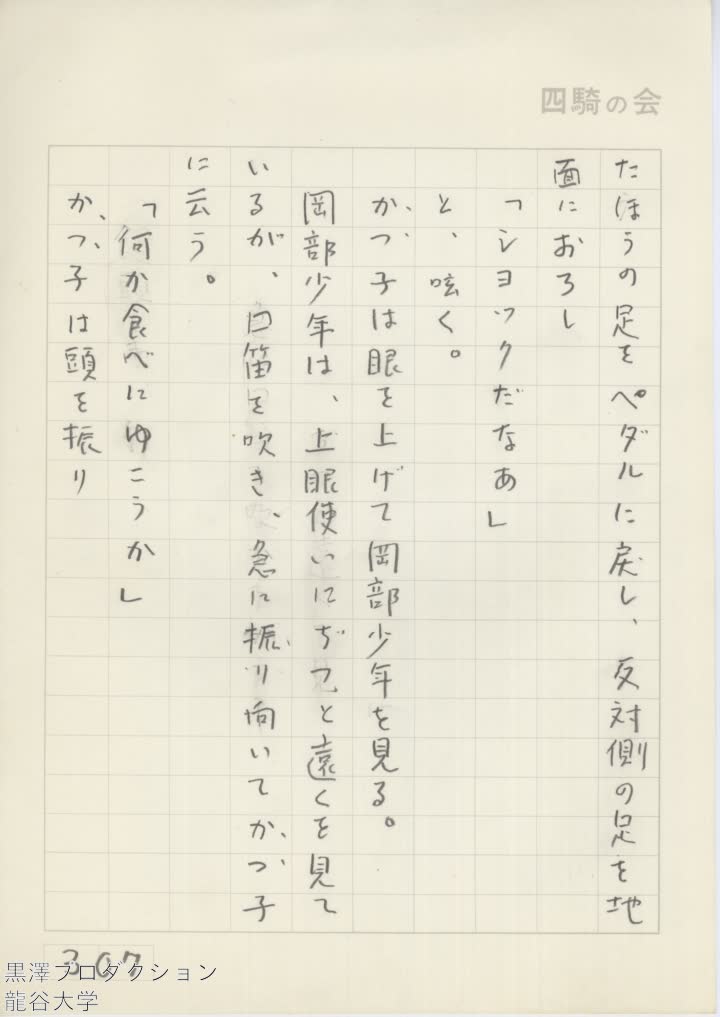 四騎の会
たほうの足をペダルに戻し、反対側の足を地
面におろし
「ショックだなあ」
と、呟く。
かつ子は眼を上げて岡部少年を見る。
岡部少年は、上眼使いにぢっと遠くを見て
いるが、口笛を吹き、急に振り向いてかつ子
に云う。
「何か食べにゆこうか」
かつ子は頭を振り
307
黒澤プロダクション
龍谷大学